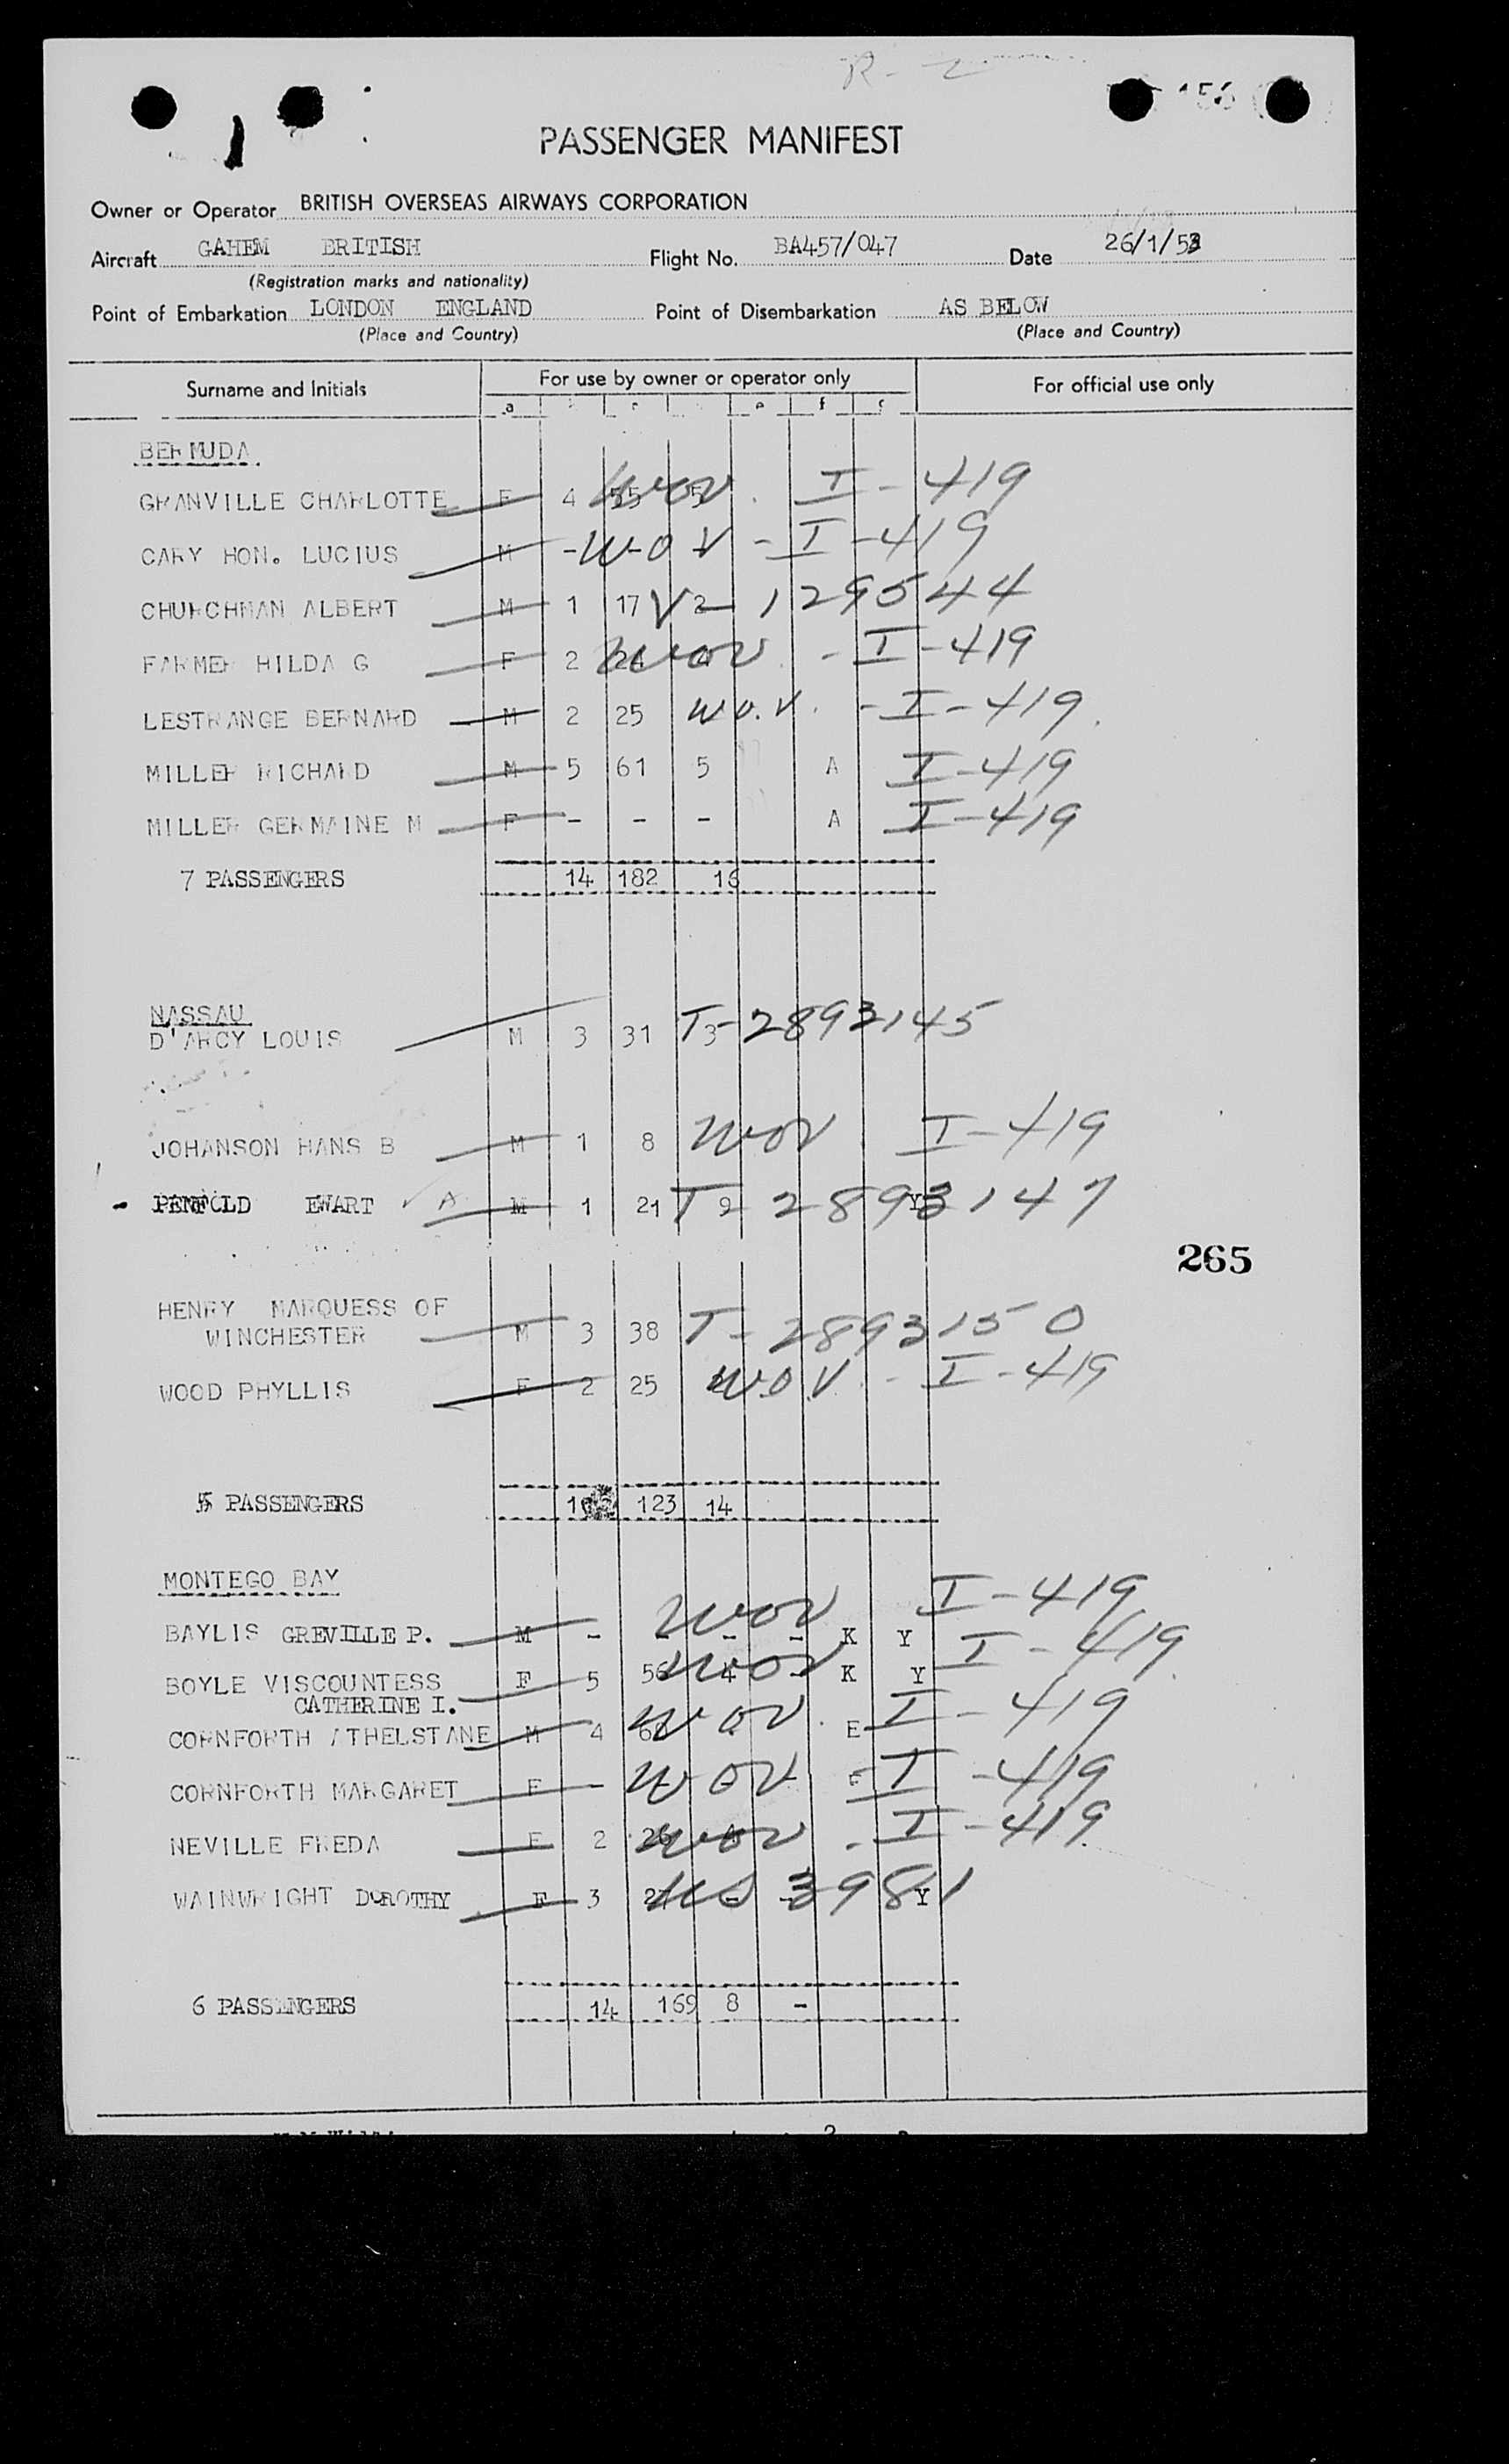 R-2
156
PASSENGER MANIFEST
Owner or Operator BRITISH OVERSEAS AIRWAYS CORPORATION
Aircraft GAHEM BRITISH Flight No. BA457/047 Date 26/1/53
(Registration marks and nationality)
Point of Embarkation LONDON ENGLAND Point of Disembarkation AS BELOW
(Place and Country) (Place and Country)
Surname and Initials For use by owner or operator only For official use only
a e f
BERMUDA
GRANVILLE CHARLOTTE F 4 55 5 WOV I-419
CARY HON. LUCIUS M - WOV - I-419
CHURCHMAN ALBERT M 1 17 2 V-129544
FARMER HILDA G F 2 WOV - I-419
LESTRANGE BERNARD M 2 25 W.O.V. - I-419.
MILLER RICHARD M 5 61 5 A I-419
MILLER GERMAINE M F - - - A I-419
7 PASSENGERS 14 182 16
NASSAU
D'ARCY LOUIS M 3 31 3 T-2893145
JOHANSON HANS B M 1 8 WOV I-419
PENFOLD EWART A M 1 21 2 Y T 2893147
265
HENRY MARQUESS OF
WINCHESTER M 3 38 T-2893150
WOOD PHYLLIS F 2 25 WOV - I-419
5 PASSENGERS 10 123 14
MONTEGO BAY
BAYLIS GREVILLE P. M - - - - K Y WOV I-419
BOYLE VISCOUNTESS F 5 56 4 - K Y WOV I-419
CATHERINE I.
CORNFORTH ATHELSTANE M 4 E WOV I-419
CORNFORTH MARGARET F - WOV I-419
NEVILLE FREDA F 2 26 4 WOV - I-419
WAINWRIGHT DOROTHY F 3 27 - - Y 3981
6 PASSENGERS 14 169 8 -